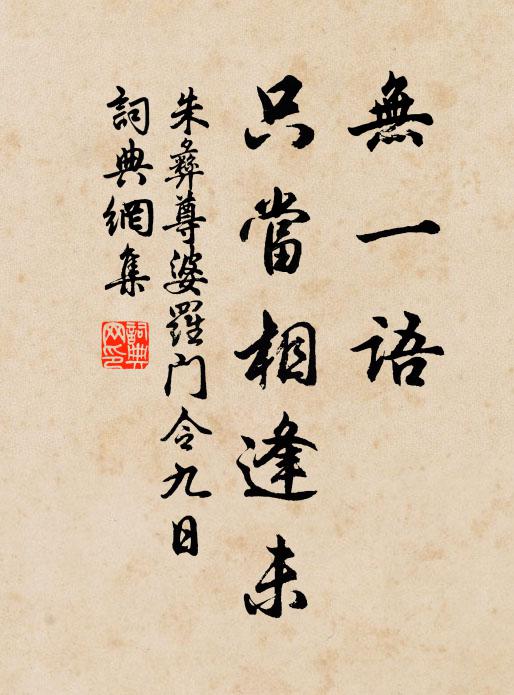 無一語
只當相逢未
朱彝尊婆羅門令九日
詞典網集
詞典網印